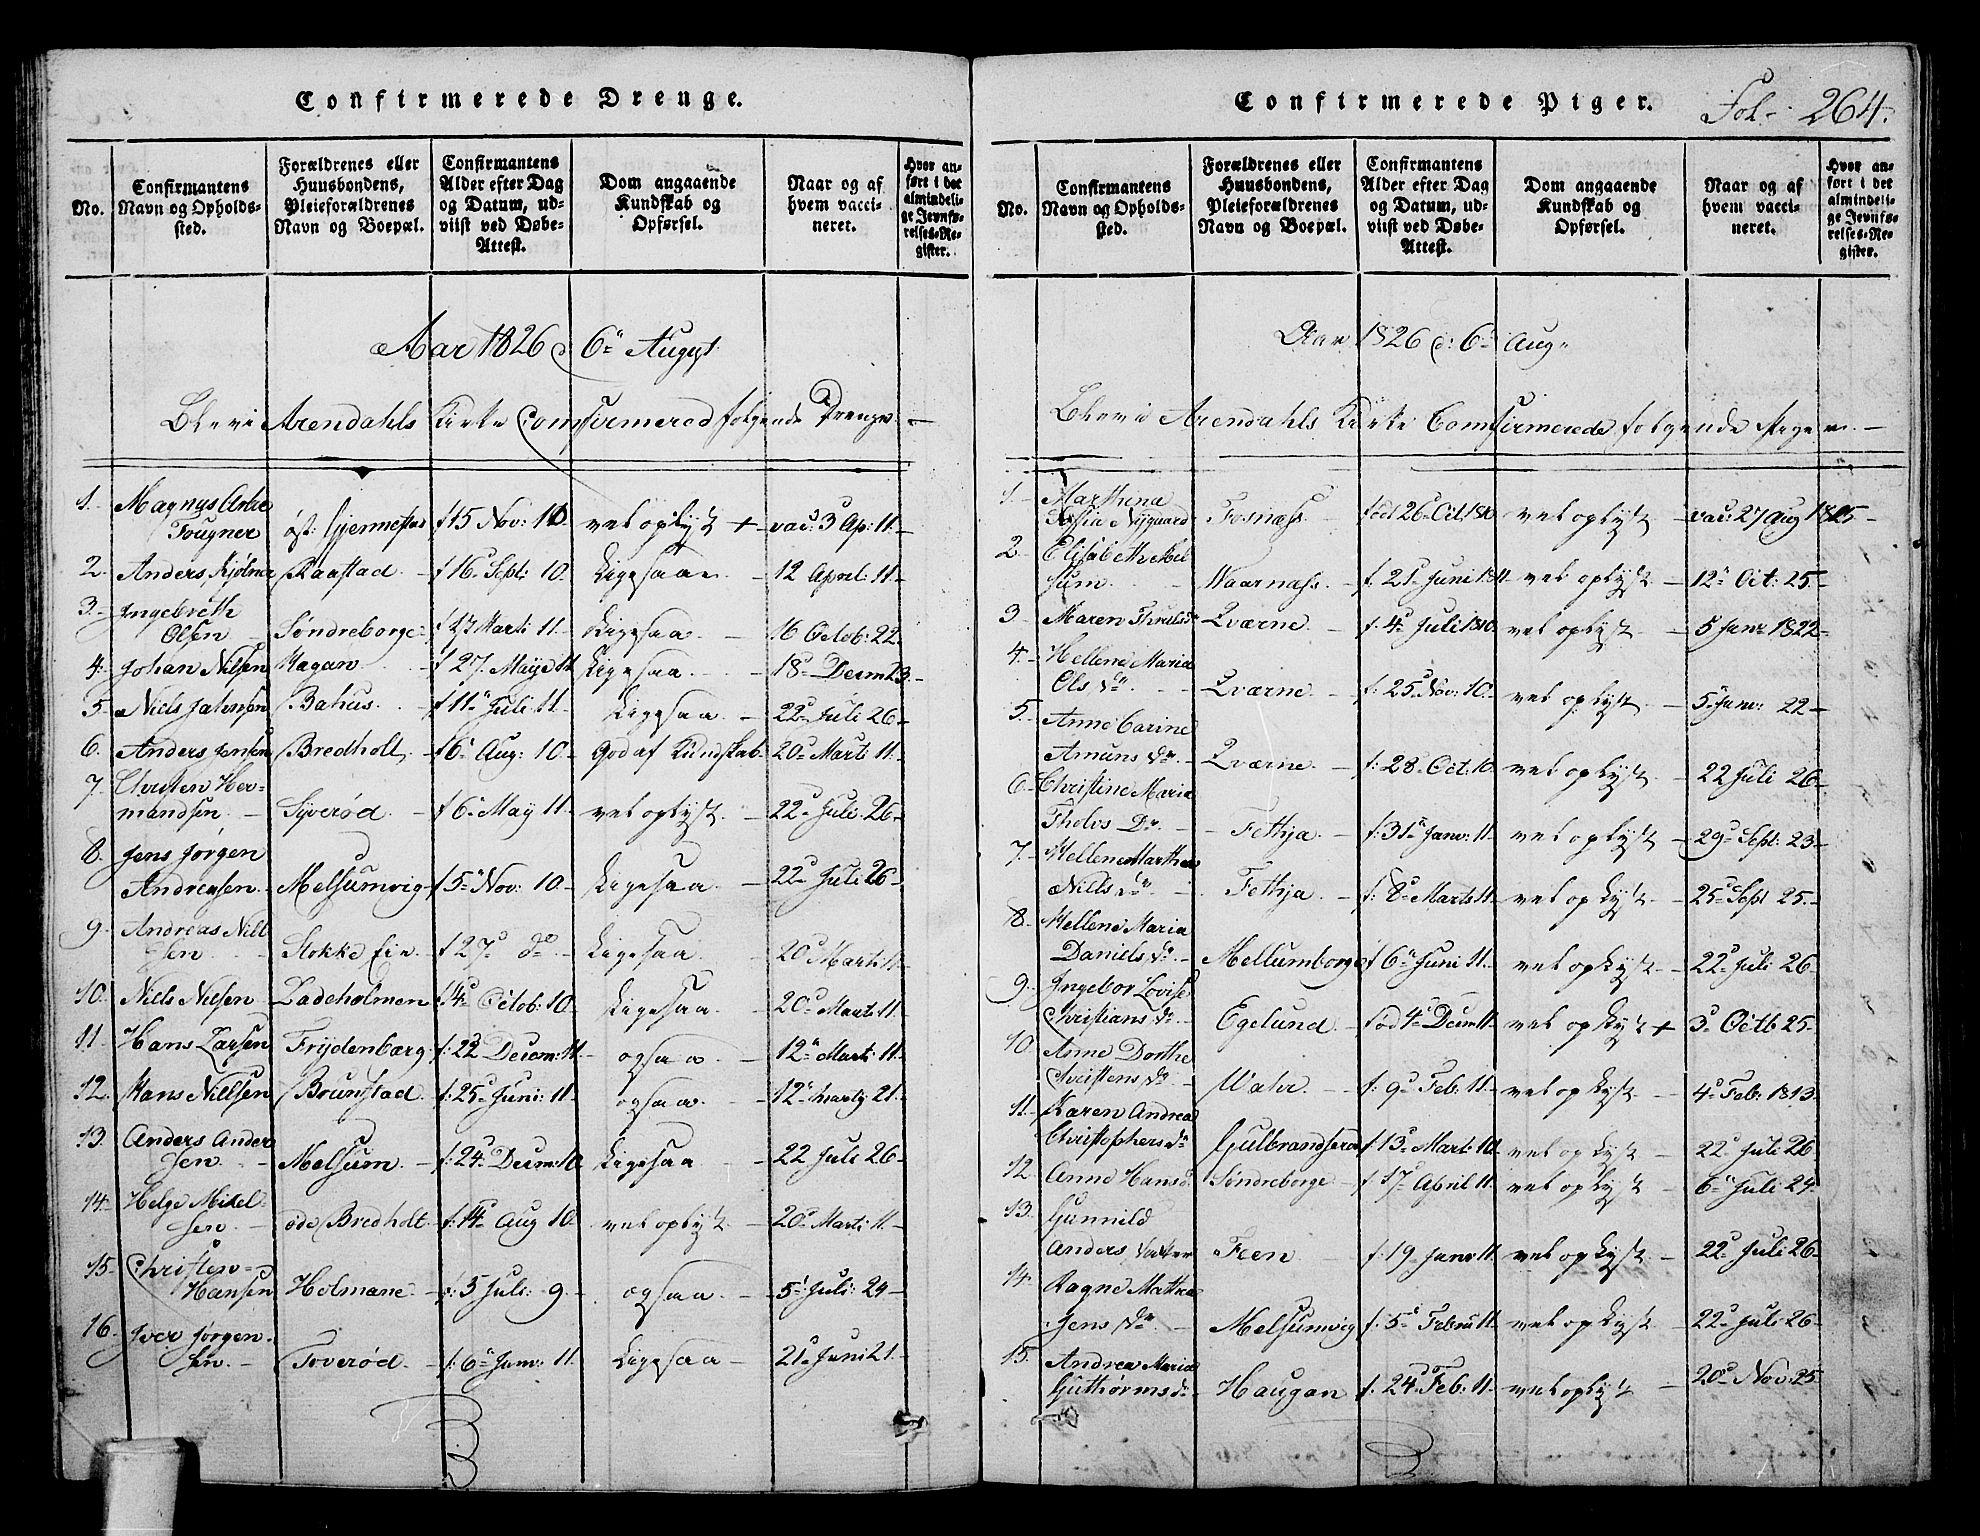 Confirmerede Drenge.
No.
Confirmantens Navn og Opholds-sted.
Forældrenes eller Huusbondens, Pleieforældrenes Navn og Boepæl.
Confirmantens Alder efter Dag og Datum, ud-viist ved Døbe-Attest.
Dom angaaende Kundskab og Opførsel.
Naar og af hvem vacci-neret.
Hvor an-ført i det almindeli-ge Jevnfø-relses-Re-gister.
Aar 1826 d 6te August
Blev i Arendahls Kirke Comfirmered følgende Drenge. —
1. Magnus Fougner øst. Gjennestad f 15 Nov: 10 vel oplyst + vac: 3 Ap: 11.
2. Anders Kjølner Raastad f 16 Sept: 10. Ligesaa 12 April: 11
3. Ingebreth Olsen Søndreborge f 17 Marti 11. Ligesaa 16 Octob: 22
4. Johan Nilsen Hagan f 27. Maije 11 Ligesaa. 18 Decm 23.
5. Niels Johnsen Bahus. f 11 Juli 11. Ligesaa 22 Juli 26
6. Anders Jensen Bredholt f 6 Aug: 10. God af Kundskab. 20 Marti 11.
7. Christen Her-
mandsen Syverød f 6 May 11. vel oplyst. 22 Juli: 26
8. Jens Jørgen
Andreasen Melsumvig f 5 Nov: 10. Ligesaa 22 Juli 26
9. Andreas Nill
Sen Stokke Ein f 27 do Ligesaa 20 Marti: 11
10. Niels Nielsen Ladeholmen f 4 Octob: 10 Ligesaa 20 Marti: 11.
11. Hans Larsen Frydenbærg f: 22 Decem: 11 ogsaa 12 Marti: 11.
12. Hans Nillsen Brunstad f: 25 Juni: 11 ogsaa 12 Marty 21.
13. Anders Ander
Sen Melsum f: 24 Decm: 10 Ligesaa 22 Juli 26
14. Helge Mikel
Sen øde Bredholt f: 14 Aug 10. vel oplyst 20 Marti: 11
15. Christen
Hansen Holmane f: 5 Juli: 9 ogsaa 5 Juli: 24
16. Iver Jørgen
Sen Toverød f: 6 Janv: 11. Ligesaa 21 Juni 21.
Confirmerede Piger.
Fol. 264.
No.
Confirmantens Navn og Opholds-sted.
Forældrenes eller Huusbondens, Pleieforældrenes Navn og Boepæl.
Confirmantens Alder efter Dag og Datum, ud-viist ved Døbe-Attest.
Dom angaaende Kundskab og Opførsel.
Naar og af hvem vacci-neret.
Hvor an-ført i det almindeli-ge Jevnfø-relses-Re-gister.
Aar 1826 d: 6 Aug.
Blev i Arendahls Kirke Comfirmerede følgende Piger. —
1. Marthina
Sofia Nygaard Fosnæss født 26 Oct: 1810 vel oplyst vac: 27 Aug 1825
2. Elisabeth Abel
sum Waarnæss f. 21 Juni 1811 vel oplyst 12 Oct: 25
3. Maren Qværne f. 4 Juli 1810 vel oplyst 5 Janr 1822
4. Hellene Maria
Ols Dr Qværne f. 25 Nov: 10. vel oplyst 5 Janv: 22
5. Anne Carine
Amuns Dr Qværne f: 28 Oct: 10 vel oplyst 22 Juli 26
6. Christine Maria
Tholvs Dr. Fethja f: 31 Janv: 11. vel oplyst 29 Sept: 23
7. Hellene Marthea
Niels Dr Fethja f: 8 Marts 11 vel oplyst 25 Sept 25.
8. Hellene Maria
Daniels Dr Mellumborge f 6 Juni 11. vel oplyst 22 Juli 26.
9. Ingebor Lovise
Christians Dr Egelund fød 4 Decm 11. vel oplyst + 3 Octb 25
10. Anne Dorthe
Christens Dr Wahr f: 9 Feb: 11 vel oplyst 4 Feb: 1813.
11. Karen Andrea
Christophers Dr Gulbrandserød f 13 Mart: 10 vel oplyst 22 Juli 26
12. Anne Hans d. Søndreborge f 17 April 11. vel oplyst 6 Juli 24
13. Gunnild
Anders Datter Feen f: 19 Janv 11. vel oplyst 22 Juli 26
14. Ragne Mathea
Jens Dr Melsumvig f. 5 Febru 11 vel oplyst 22 Juli 26
15. Andrea Maria
Guthorms dr Haugan f. 24 Feb: 11. vel oplyst 20 Nov: 25